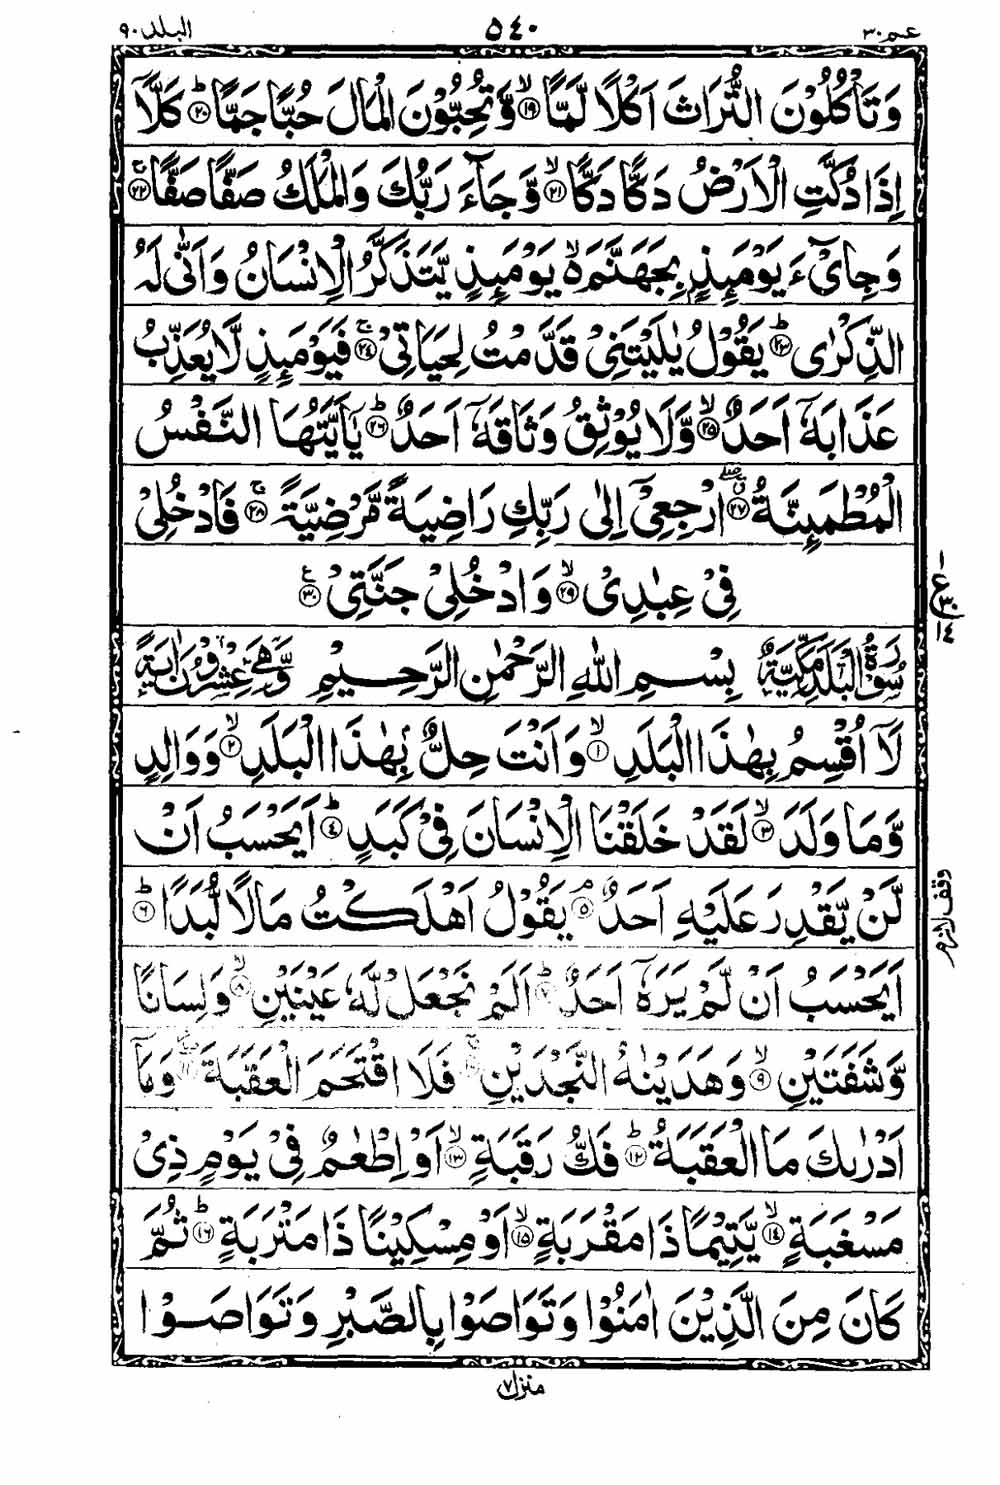 عم ٣٠
٥٤٠
البلد ٩٠
وَتَاْكُلُوْنَ التُّرَاثَ اَكْلًا لَّمًّا ۙ۝١٩ وَّتُحِبُّوْنَ الْمَالَ حُبًّا جَمًّا ؕ۝٢٠ كَلَّاۤ
اِذَا دُكَّتِ الْاَرْضُ دَكًّا دَكًّا ۙ۝٢١ وَّجَآءَ رَبُّكَ وَالْمَلَكُ صَفًّا صَفًّا ۚ۝٢٢
وَجِایْٓءَ يَوْمَئِذٍۭ بِجَهَنَّمَ ۙ۬ يَوْمَئِذٍ يَّتَذَكَّرُ الْاِنْسَانُ وَاَنّٰى لَهُ
الذِّكْرٰى ؕ۝٢٣ يَقُوْلُ يٰلَيْتَنِیْ قَدَّمْتُ لِحَيَاتِیْ ۚ۝٢٤ فَيَوْمَئِذٍ لَّا يُعَذِّبُ
عَذَابَهٗۤ اَحَدٌ ۙ۝٢٥ وَّلَا يُوْثِقُ وَثَاقَهٗۤ اَحَدٌ ؕ۝٢٦ يٰۤاَيَّتُهَا النَّفْسُ
الْمُطْمَئِنَّةُ ۗۖ۝٢٧ ارْجِعِیْۤ اِلٰى رَبِّكِ رَاضِيَةً مَّرْضِيَّةً ۚ۝٢٨ فَادْخُلِیْ
فِیْ عِبٰدِیْ ۙ۝٢٩ وَادْخُلِیْ جَنَّتِیْ ۝٣٠
سُوْرَةُ الْبَلَدِ مَكِّيَّةٌ بِسْمِ اللهِ الرَّحْمٰنِ الرَّحِيْمِ وَّهِیَ عِشْرُوْنَ اٰيَةً
لَاۤ اُقْسِمُ بِهٰذَا الْبَلَدِ ۙ۝١ وَاَنْتَ حِلٌّۢ بِهٰذَا الْبَلَدِ ۙ۝٢ وَوَالِدٍ
وَّمَا وَلَدَ ۙ۝٣ لَقَدْ خَلَقْنَا الْاِنْسَانَ فِیْ كَبَدٍ ؕ۝٤ اَيَحْسَبُ اَنْ
لَّنْ يَّقْدِرَ عَلَيْهِ اَحَدٌ ۘ۝٥ يَقُوْلُ اَهْلَكْتُ مَالًا لُّبَدًا ؕ۝٦
اَيَحْسَبُ اَنْ لَّمْ يَرَهٗۤ اَحَدٌ ؕ۝٧ اَلَمْ نَجْعَلْ لَّهٗ عَيْنَيْنِ ۙ۝٨ وَلِسَانًا
وَّشَفَتَيْنِ ۙ۝٩ وَهَدَيْنٰهُ النَّجْدَيْنِ ۚ۝ فَلَا اقْتَحَمَ الْعَقَبَةَ ؗۖ۝١١ وَمَاۤ
اَدْرٰىكَ مَا الْعَقَبَةُ ؕ۝١٢ فَكُّ رَقَبَةٍ ۙ۝١٣ اَوْ اِطْعٰمٌ فِیْ يَوْمٍ ذِیْ
مَسْغَبَةٍ ۙ۝١٤ يَّتِيْمًا ذَا مَقْرَبَةٍ ۙ۝١٥ اَوْ مِسْكِيْنًا ذَا مَتْرَبَةٍ ؕ۝١٦ ثُمَّ
كَانَ مِنَ الَّذِيْنَ اٰمَنُوْا وَتَوَاصَوْا بِالصَّبْرِ وَتَوَاصَوْا
منزل ٧
ع
٣٠
١٤
وقف لازم